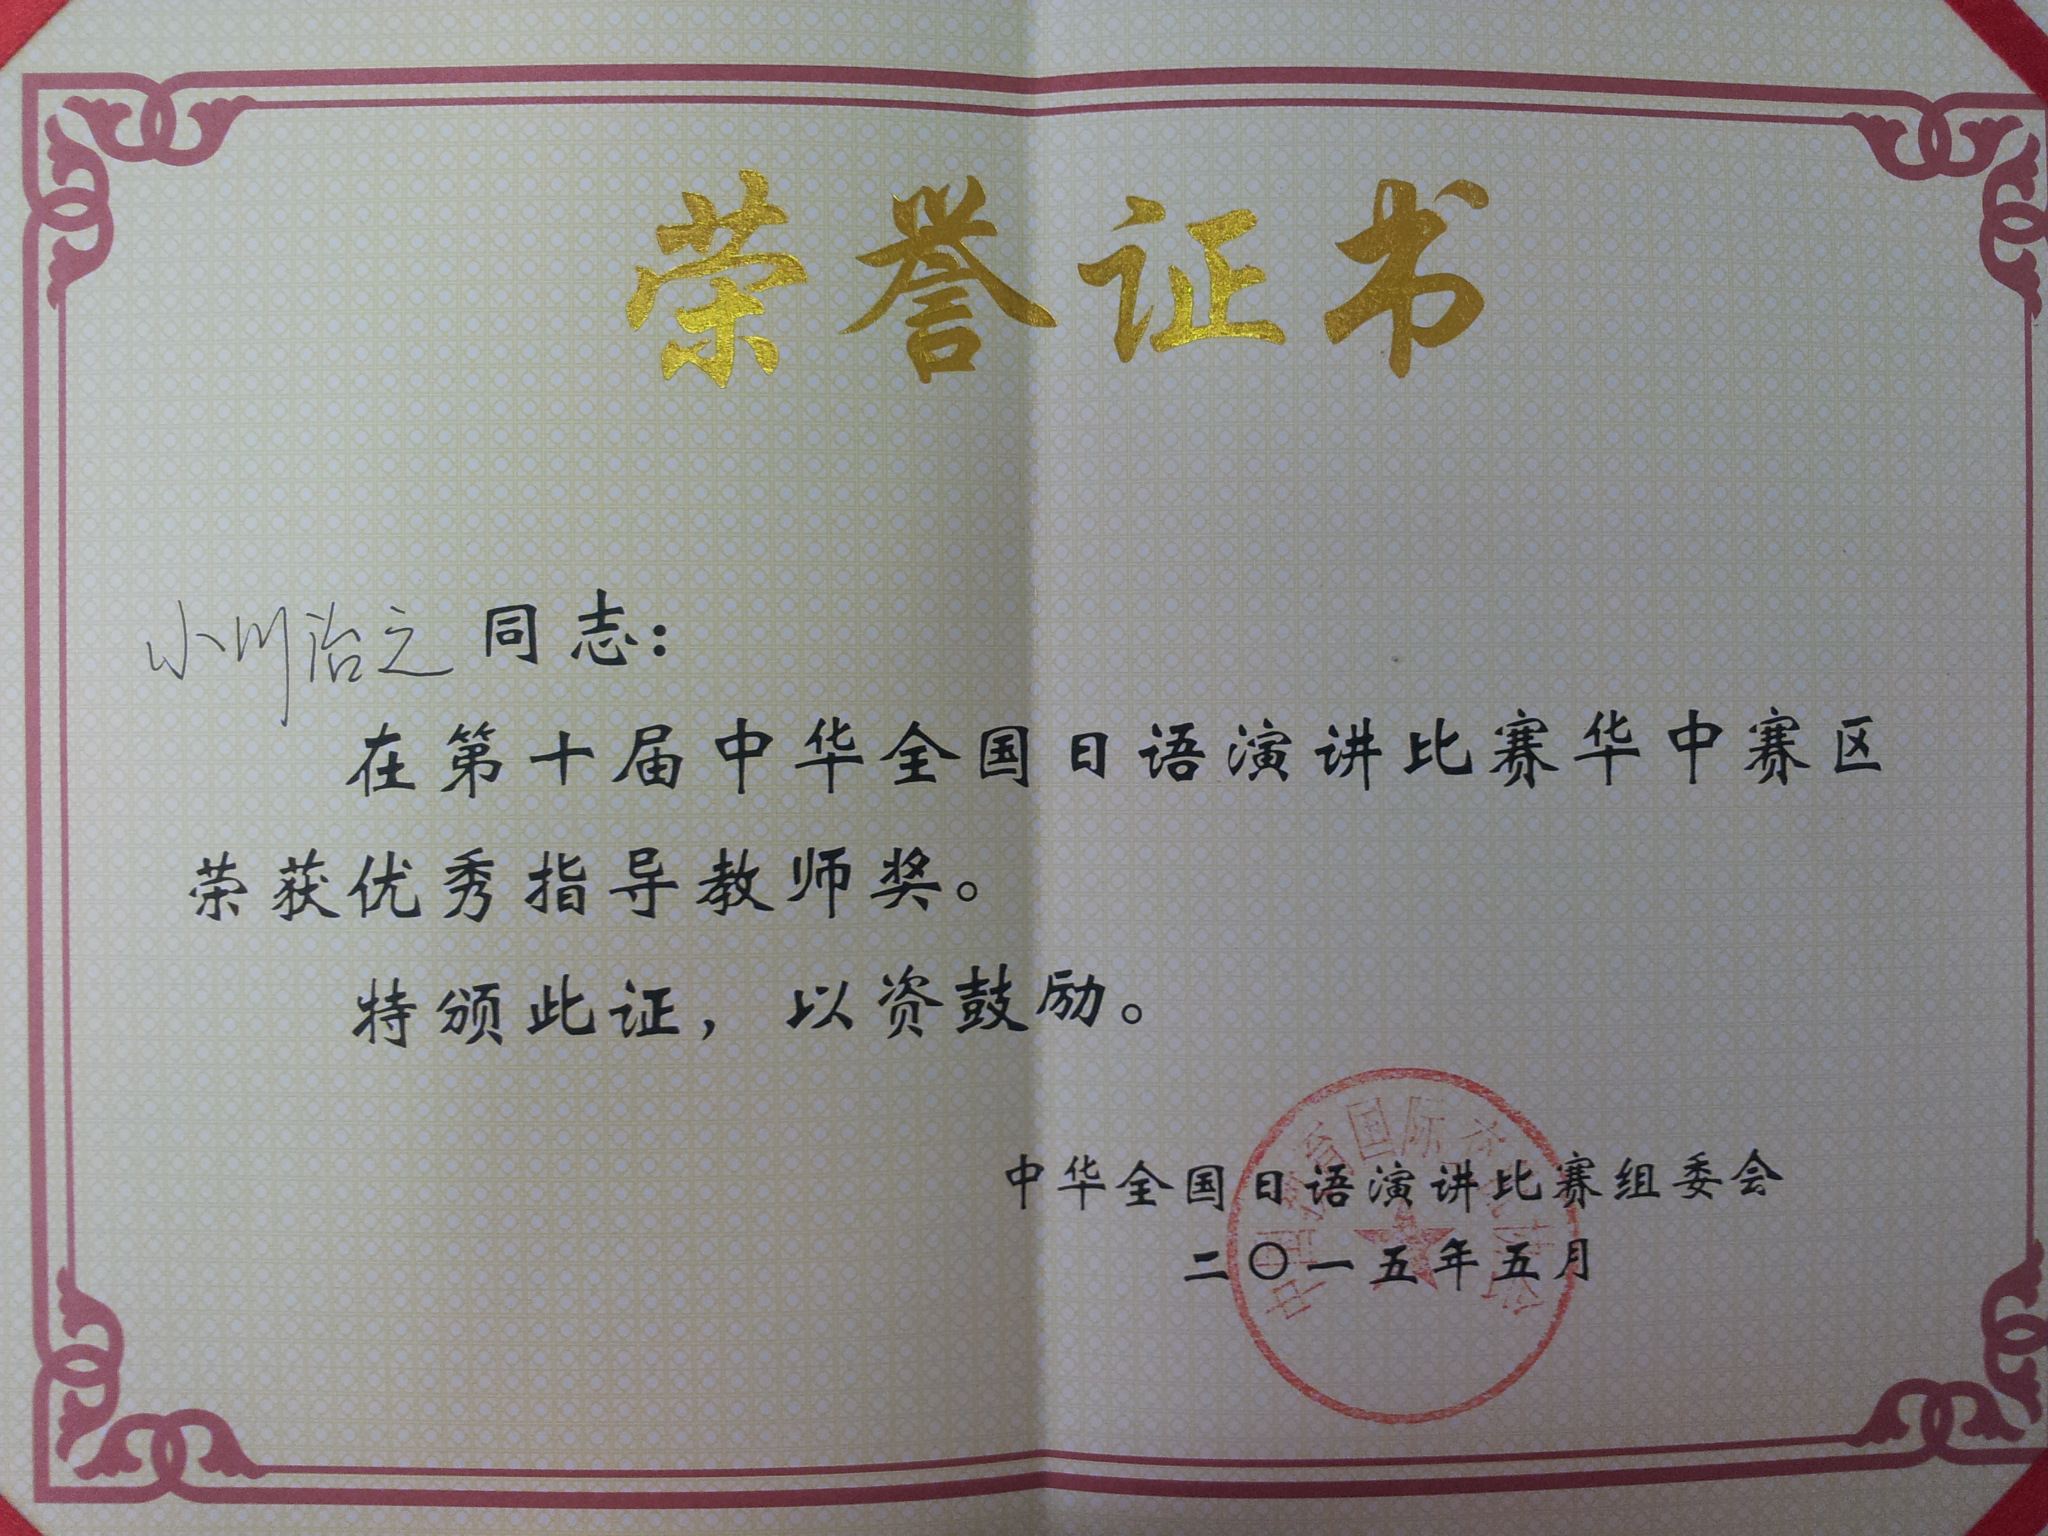 荣誉证书
小川治之 同志：
在第十届中华全国日语演讲比赛华中赛区
荣获优秀指导教师奖。
特颁此证，以资鼓励。
中华全国日语演讲比赛组委会
二〇一五年五月